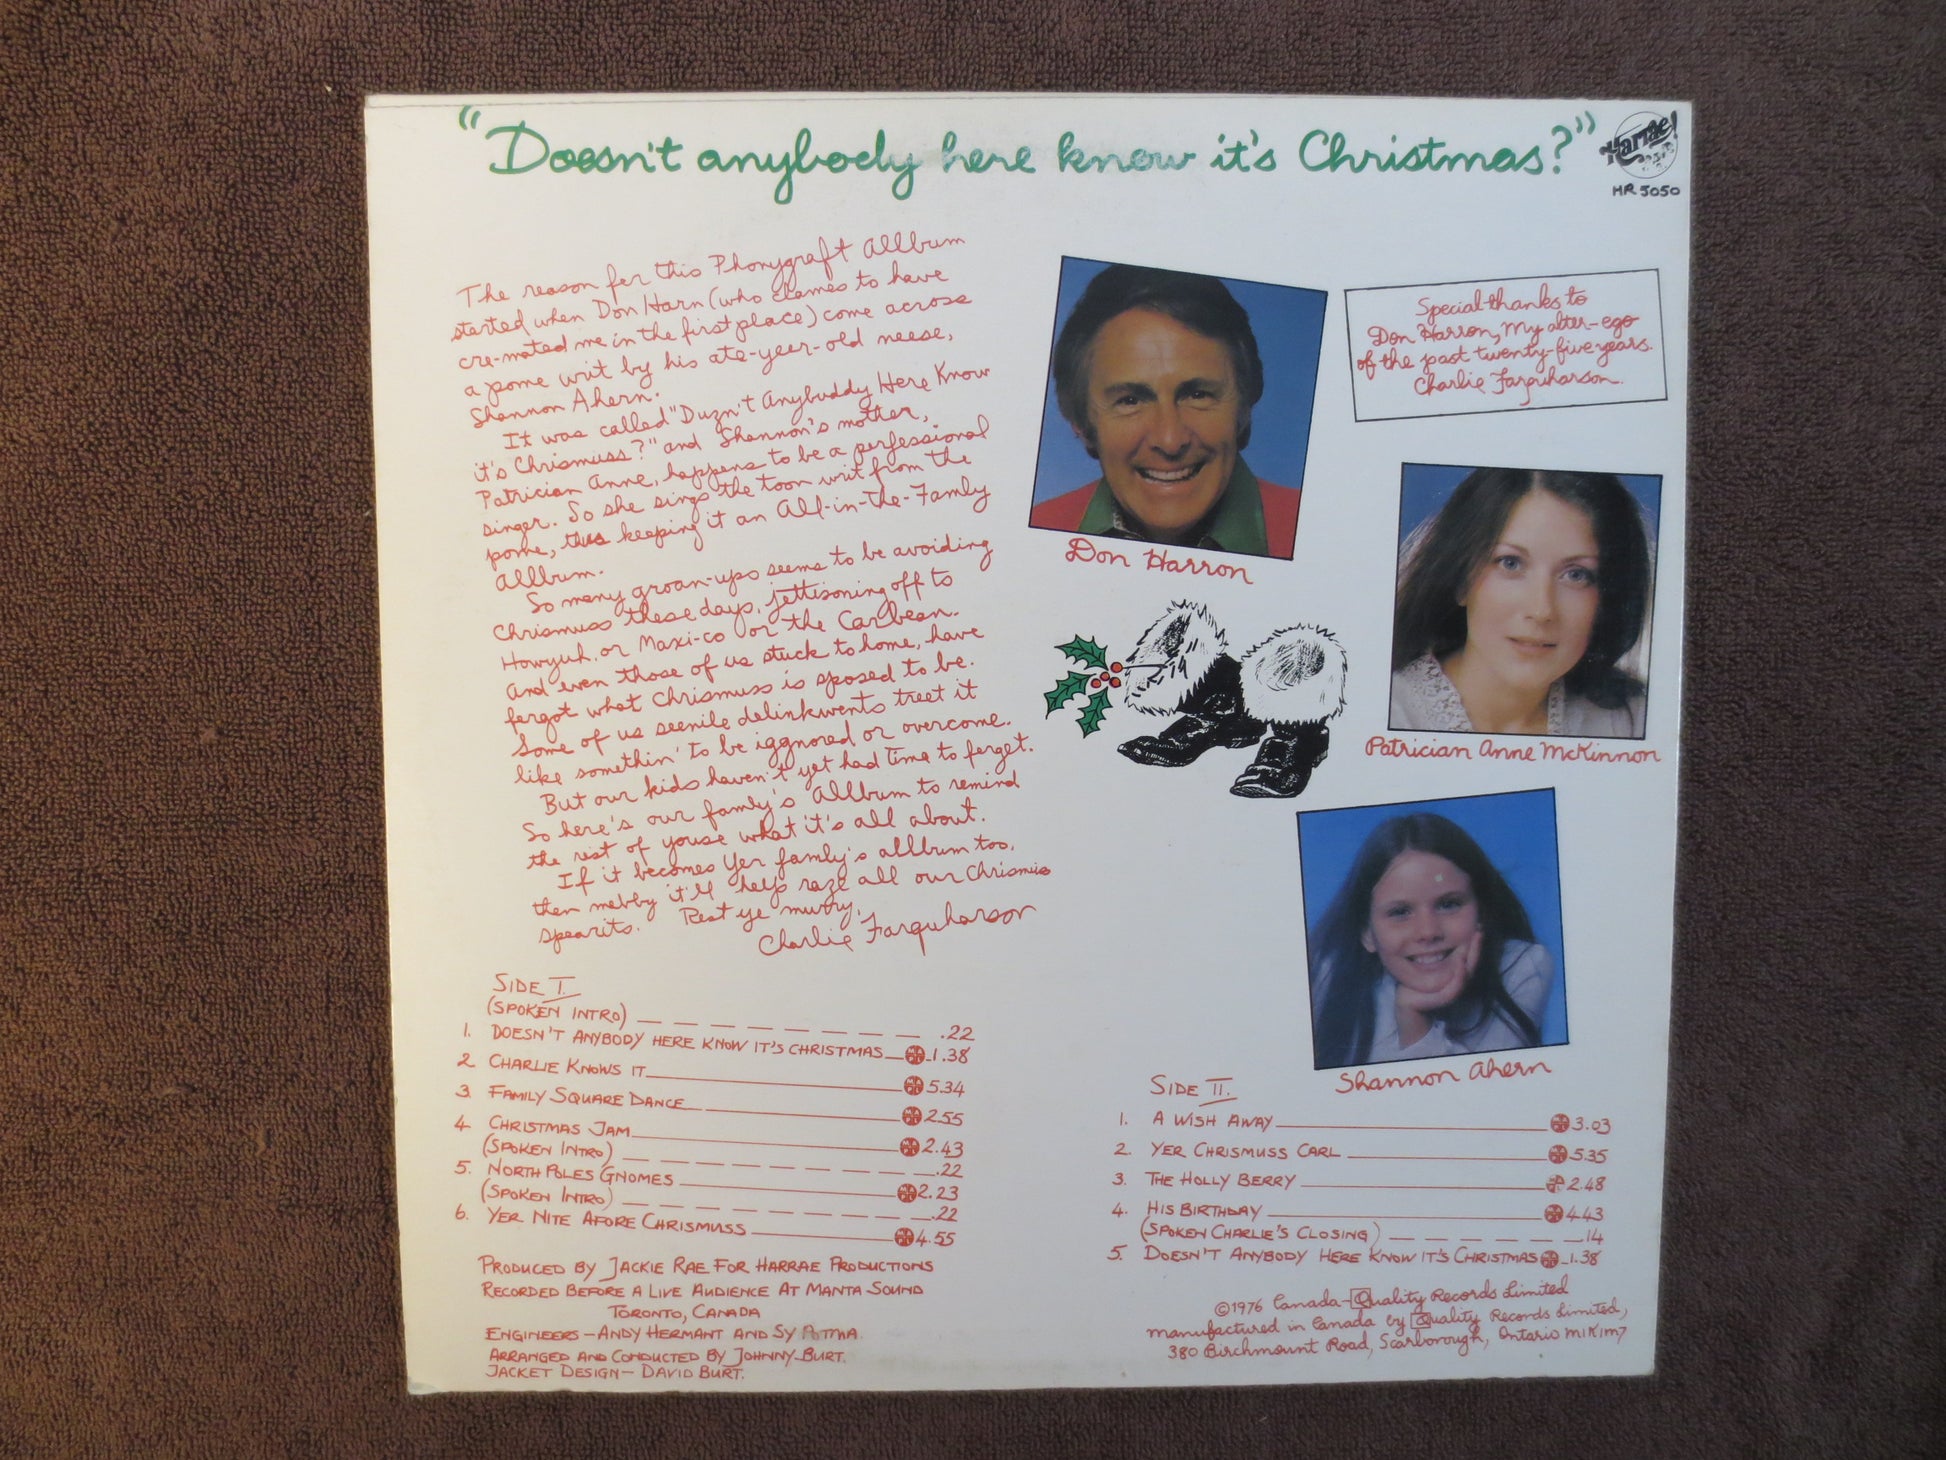 "Doesn't anybody here know it's Christmas?"
Harrae!
HR 5050
The reason fer this Phonygraft Allbum
started when Don Harn (who clames to have
cre-mated me in the first place) come across
a pome writ by his ate-year-old neese,
Shannon Ahern.
It was called "Duzn't Anybuddy Here Know
it's Chrismuss?" and Shannon's mother,
Patrician Anne, happens to be a perfessional
singer. So she sings the toon writ from the
pome, thus keeping it an All-in-the-Famly
Allbum.
So many groan-ups seems to be avoiding
Chrismuss these days, jettisoning off to
Howyuh, or Maxi-co or the Carbean.
And even those of us stuck to home, have
fergot what Chrismuss is sposed to be.
Some of us seenile delinkwents treet it
like somethin' to be iggnored or overcome.
But our kids haven't yet had time to ferget.
So here's our famly's Allbum to remind
the rest of youse what it's all about.
If it becomes yer famly's allbum too,
then mebby it'll help raze all our Chrismuss
spearits. Rest ye murry,
Charlie Farquharson
Special thanks to
Don Harron, My alter-ego
of the past twenty-five years.
Charlie Farquharson.
Don Harron
Patrician Anne McKinnon
Shannon Ahern
SIDE I.
(SPOKEN INTRO) .22
1. DOESN'T ANYBODY HERE KNOW IT'S CHRISTMAS 1.38
2. CHARLIE KNOWS IT 5.34
3. FAMILY SQUARE DANCE 2.55
4. CHRISTMAS JAM 2.43
(SPOKEN INTRO) .22
5. NORTH POLES GNOMES 2.23
(SPOKEN INTRO) .22
6. YER NITE AFORE CHRISMUSS 4.55
PRODUCED BY JACKIE RAE FOR HARRAE PRODUCTIONS
RECORDED BEFORE A LIVE AUDIENCE AT MANTA SOUND
TORONTO, CANADA
ENGINEERS - ANDY HERMANT AND SY POTMA
ARRANGED AND CONDUCTED BY JOHNNY BURT.
JACKET DESIGN - DAVID BURT.
SIDE II.
1. A WISH AWAY 3.03
2. YER CHRISMUSS CARL 5.35
3. THE HOLLY BERRY 2.48
4. HIS BIRTHDAY 4.43
(SPOKEN CHARLIE'S CLOSING) .14
5. DOESN'T ANYBODY HERE KNOW IT'S CHRISTMAS 1.38
©1976 Canada - Quality Records Limited
manufactured in Canada by Quality Records Limited,
380 Birchmount Road, Scarborough, Ontario M1K1M7